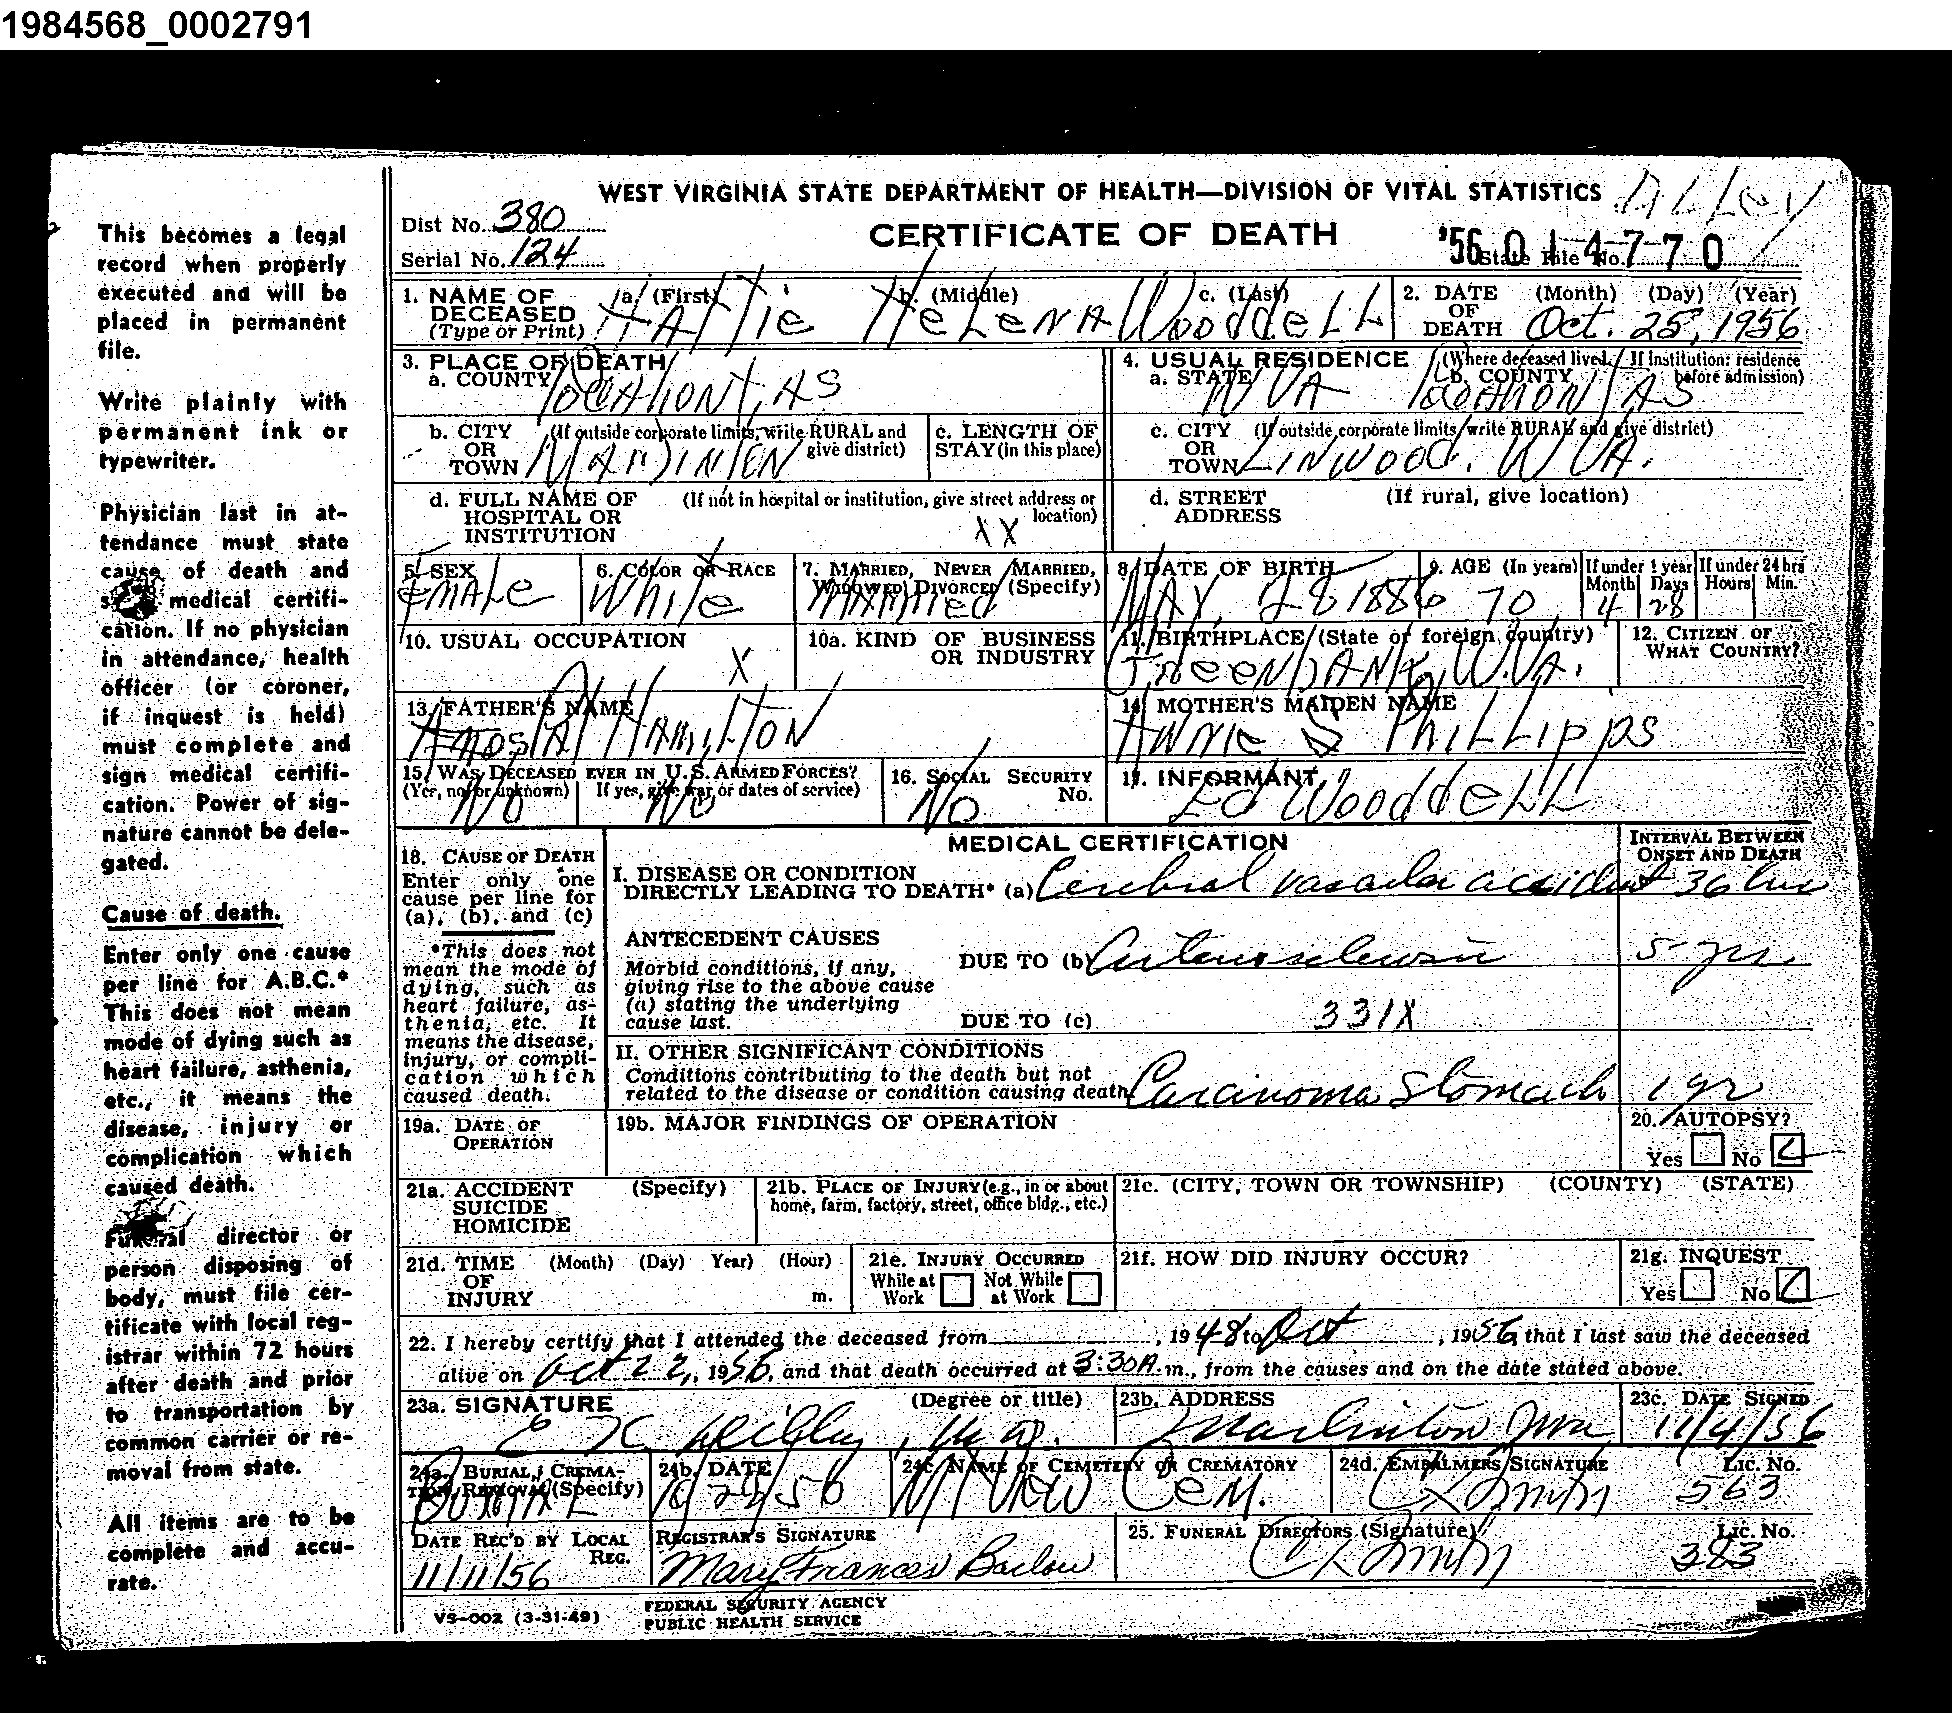 1984568_0002791
This becomes a legal
record when properly
executed and will be
placed in permanent
file.
Write plainly with
permanent ink or
typewriter.
Physician last in at-
tendance must state
cause of death and
medical certifi-
cation. If no physician
in attendance, health
officer (or coroner,
if inquest is held)
must complete and
sign medical certifi-
cation. Power of sig-
nature cannot be dele-
gated.
Cause of death.
Enter only one cause
per line for A.B.C.*
This does not mean
mode of dying such as
heart failure, asthenia,
etc., it means the
disease, injury or
complication which
caused death.
Funeral director or
person disposing of
body, must file cer-
tificate with local reg-
istrar within 72 hours
after death and prior
to transportation by
common carrier or re-
moval from state.
All items are to be
complete and accu-
rate.
WEST VIRGINIA STATE DEPARTMENT OF HEALTH—DIVISION OF VITAL STATISTICS
Dist No. 380
CERTIFICATE OF DEATH
Serial No. 124
'56 014770
State File No.
1. NAME OF DECEASED (Type or Print) a. (First) b. (Middle) c. (Last)
HAttie HeLenA WooddeLL
2. DATE OF DEATH (Month) (Day) (Year)
Oct. 25, 1956
3. PLACE OF DEATH
a. COUNTY POCAHONTAS
4. USUAL RESIDENCE (Where deceased lived. If institution: residence before admission)
a. STATE W VA b. COUNTY POCAHONTAS
b. CITY OR TOWN (If outside corporate limits, write RURAL and give district)
c. LENGTH OF STAY (in this place)
c. CITY OR TOWN (If outside corporate limits write RURAL and give district)
LINWOOD. W VA.
d. FULL NAME OF HOSPITAL OR INSTITUTION (If not in hospital or institution, give street address or location)
XX
d. STREET ADDRESS (If rural, give location)
5. SEX FEmALe
6. COLOR OR RACE White
7. MARRIED, NEVER MARRIED, WIDOWED, DIVORCED (Specify) MARRied
8. DATE OF BIRTH MAY. 28 1886
9. AGE (In years) 70
If under 1 year Month 4 Days 28
If under 24 hrs Hours Min.
10. USUAL OCCUPATION X
10a. KIND OF BUSINESS OR INDUSTRY
11. BIRTHPLACE (State or foreign country) GReenbANK, W.VA.
12. CITIZEN OF WHAT COUNTRY?
13. FATHER'S NAME
Amos A HAmiLTON
14. MOTHER'S MAIDEN NAME
ANNie S PhiLLipps
15. WAS DECEASED EVER IN U.S. ARMED FORCES?
(Yes, no, or unknown) No If yes, give war or dates of service) No
16. SOCIAL SECURITY No. No
17. INFORMANT
Ed WooddeLL
MEDICAL CERTIFICATION
INTERVAL BETWEEN ONSET AND DEATH
18. CAUSE OF DEATH
Enter only one
cause per line for
(a), (b), and (c)
*This does not
mean the mode of
dying, such as
heart failure, as-
thenia, etc. It
means the disease,
injury, or compli-
cation which
caused death.
I. DISEASE OR CONDITION
DIRECTLY LEADING TO DEATH* (a) Cerebral vascular accident 36 hrs
ANTECEDENT CAUSES
Morbid conditions, if any,
giving rise to the above cause
(a) stating the underlying
cause last.
DUE TO (b) Arteriosclerosis 5 yrs
DUE TO (c) 331X
II. OTHER SIGNIFICANT CONDITIONS
Conditions contributing to the death but not
related to the disease or condition causing death
Carcinoma Stomach 1 yr
19a. DATE OF OPERATION
19b. MAJOR FINDINGS OF OPERATION
20. AUTOPSY?
Yes No
21a. ACCIDENT SUICIDE HOMICIDE (Specify)
21b. PLACE OF INJURY (e.g., in or about home, farm, factory, street, office bldg., etc.)
21c. (CITY, TOWN OR TOWNSHIP) (COUNTY) (STATE)
21d. TIME OF INJURY (Month) (Day) Year) (Hour) m.
21e. INJURY OCCURRED
While at Work Not While at Work
21f. HOW DID INJURY OCCUR?
21g. INQUEST
Yes No
22. I hereby certify that I attended the deceased from , 1948 to Oct , 1956, that I last saw the deceased
alive on Oct 22, 1956, and that death occurred at 3:30A.m., from the causes and on the date stated above.
23a. SIGNATURE (Degree or title)
23b. ADDRESS
Marlinton
23c. DATE SIGNED
11/4/56
24a. BURIAL, CREMATION, REMOVAL (Specify) BURIAL
24b. DATE
24c. NAME OF CEMETERY OR CREMATORY
Mt View Cem.
24d. EMBALMERS SIGNATURE Lic. No. 563
DATE REC'D BY LOCAL REG. 11/11/56
REGISTRAR'S SIGNATURE
Mary Frances Barlow
25. FUNERAL DIRECTORS (Signature) Lic. No. 383
VS-002 (3-31-49)
FEDERAL SECURITY AGENCY
PUBLIC HEALTH SERVICE